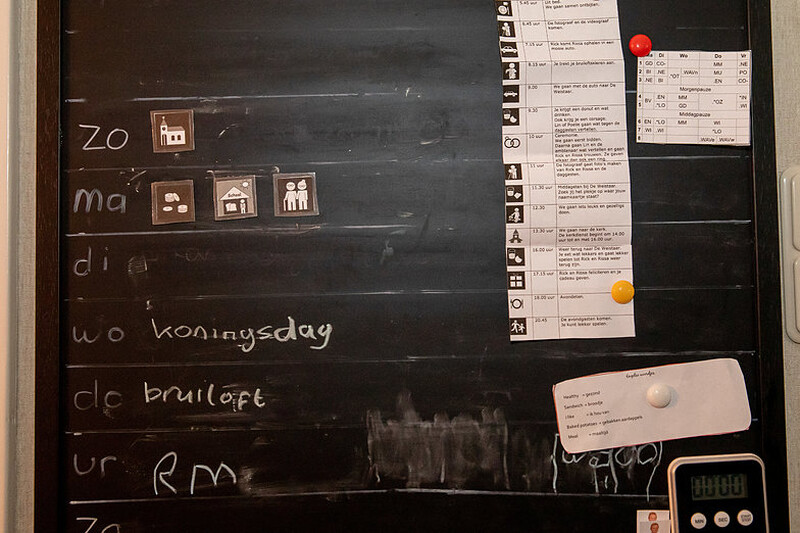 zo
ma
School
di
wo koningsdag
do bruiloft
vr RM
za
5.45 uur
Uit bed.
We gaan samen ontbijten.
6.45 uur
De fotograaf en de videograaf komen.
7.15 uur
Rick komt Rosa ophalen in een mooie auto.
8.15 uur
Je trekt je bruidskleren aan.
9.00
We gaan met de auto naar De Weistaar.
9.30
Je krijgt een donut en wat drinken.
Ook krijg je een corsage.
10 uur
Ceremonie.
We gaan eerst zitten.
11 uur
De fotograaf gaat foto's maken van Rick en Rosa en de daggasten.
11.30 uur
Middageten bij De Weistaar.
Zoek jij het plekje op waar jouw naamkaartje staat?
12.30
We gaan iets leuks en gezelligs doen.
13.30 uur
We gaan naar de kerk.
De kerkdienst begint om 14.30 uur tot en met 16.00 uur.
16.00 uur
Weer terug naar De Weistaar.
Je eet wat lekkers en gaat lekker spelen tot Rick en Rosa weer terug zijn.
17.15 uur
Rick en Rosa feliciteren en je cadeau geven.
18.00 uur
Avondeten.
20.45
De avondgasten komen.
Je kunt lekker spelen.
Di Wo Do Vr
1 GD CO- MM .NE
2 BI .NE *OT .WAVn MU PO
3 .NE BI EN CO-
Morgenpauze
4 BV .EN MM .*OZ *IN
5 *LO GD .WI
Middagpauze
6 EN *LO MM WI
7 WI WI *LO
8 WAVe WAVw
Engelse woordjes
Healthy = gezond
Sandwich = broodje
I like = ik hou van
Baked potatoes = gebakken aardappels
Meal = maaltijd
00:00
MIN SEC START STOP